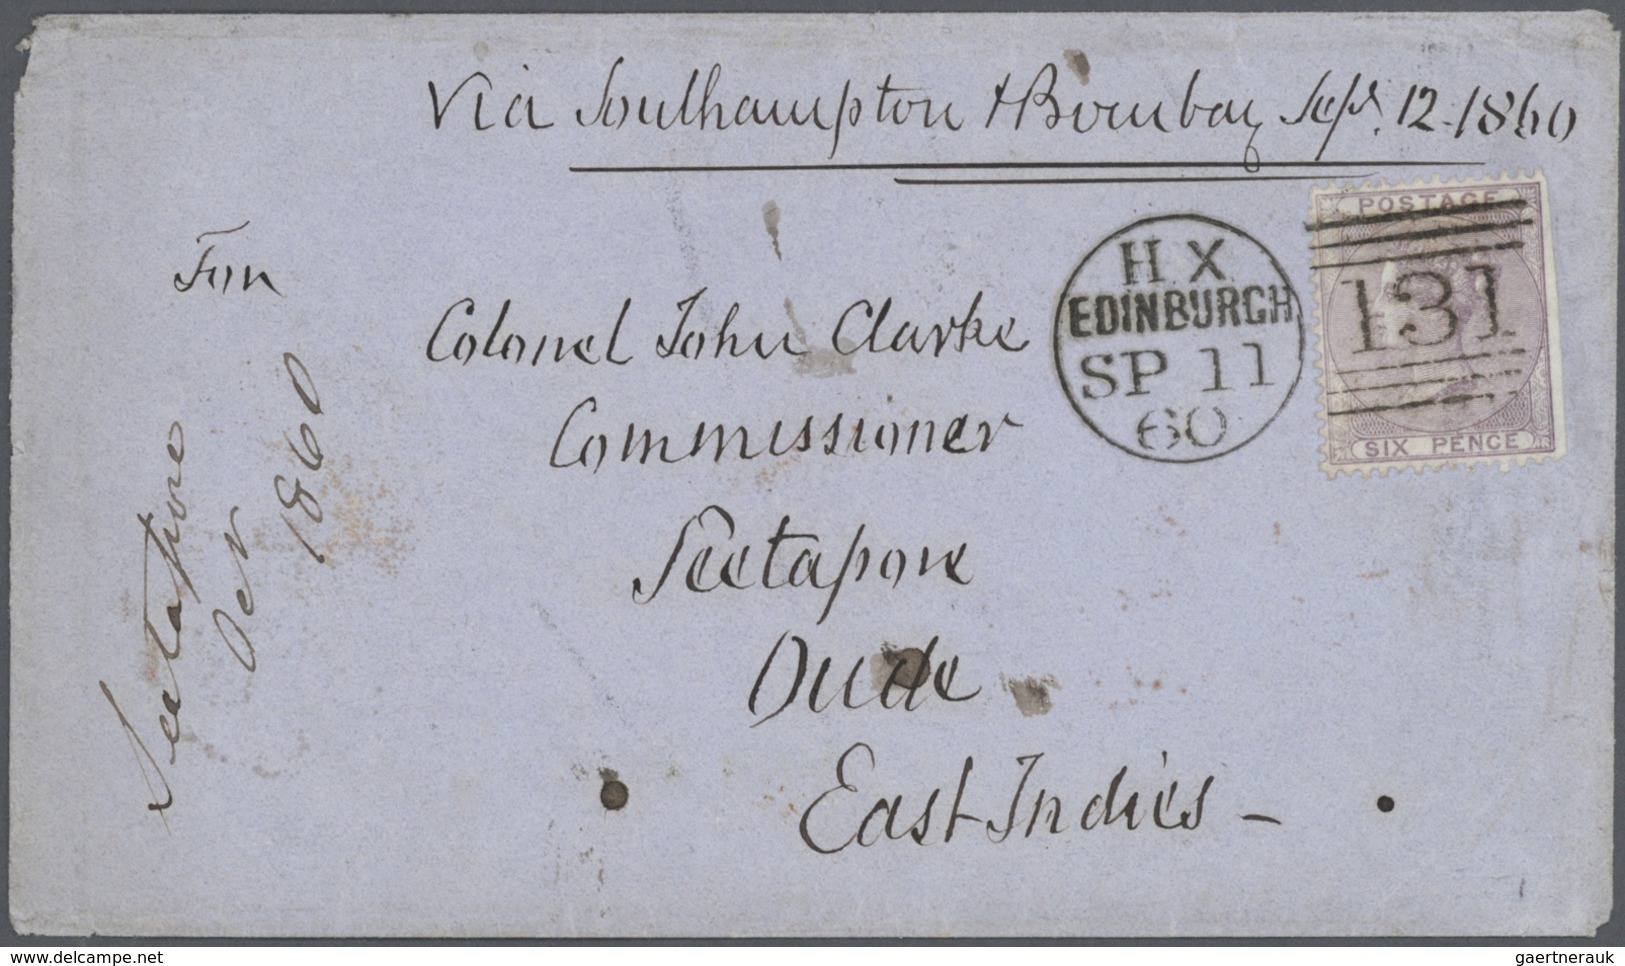 Via Southampton & Bombay Sept. 12-1860
For
Colonel John Clarke
Commissioner
Seetapore
Oude
East Indies -
Seetapore
1860
H X
EDINBURGH
SP 11
60
POSTAGE
131
SIX PENCE
www.delcampe.net
gaertnerauk